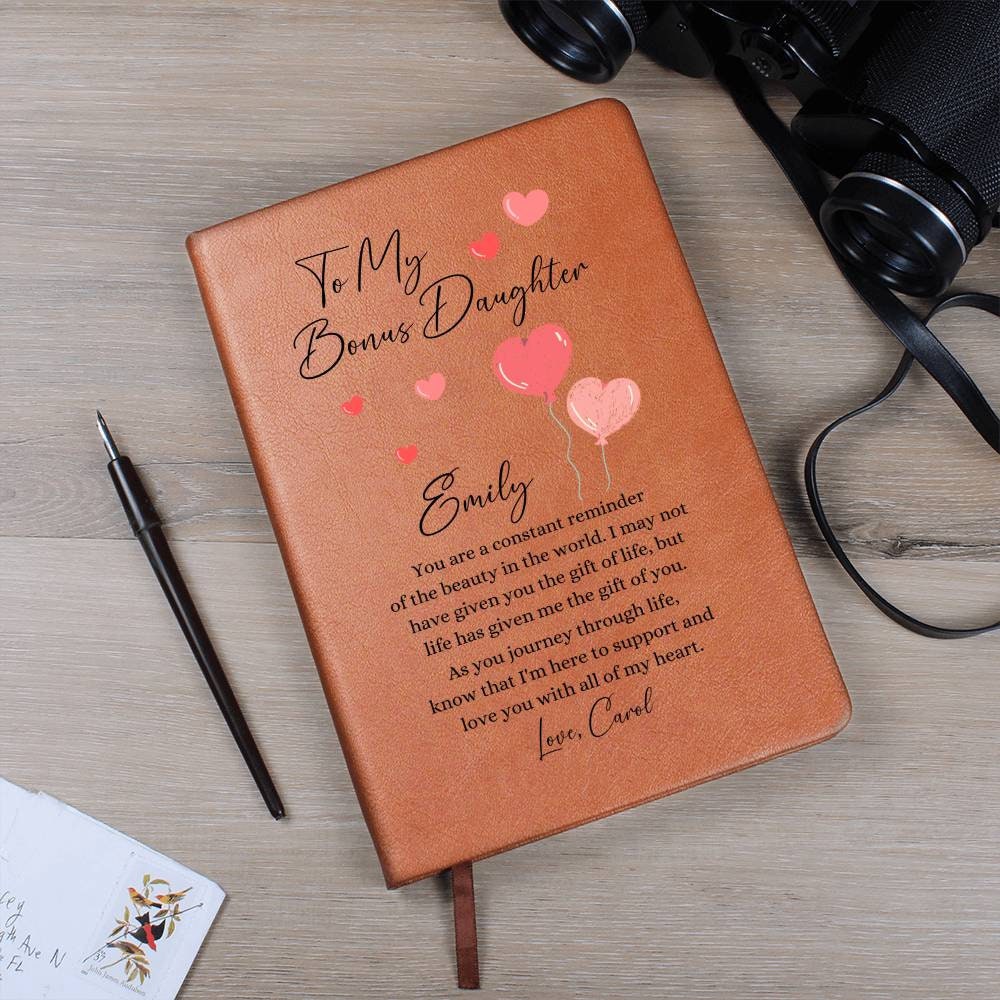 To My
Bonus Daughter
Emily
You are a constant reminder
of the beauty in the world. I may not
have given you the gift of life, but
life has given me the gift of you.
As you journey through life,
know that I'm here to support and
love you with all of my heart.
Love, Carol
Ave N
FL
37
John James Audubon